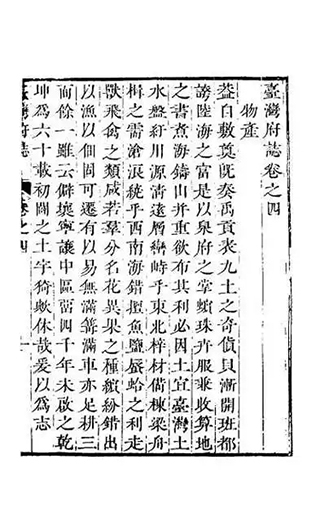 臺灣府誌卷之四
物產
蓋自敷奠既奏禹貢表九土之奇偵貝漸開班都
誇陸海之富是以泉府之掌蠙珠卉服兼收算地
之書煮海鑄山并重欲布其利必因土宜臺灣土
水盤紆川源清遠層巒峙乎東北梓材備棟梁舟
楫之需滄浪統乎西南海錯擅魚鹽蜃蛤之利走
獸飛禽之類咸若羣分名花異果之種繽紛錯出
以漁以佃固可遷有以易無滿篝滿車亦足耕三
而餘一雖云僻壤寧讓中區啻四千年未啟之乾
坤為六十載初闢之土宇猗歟休哉爰以為志